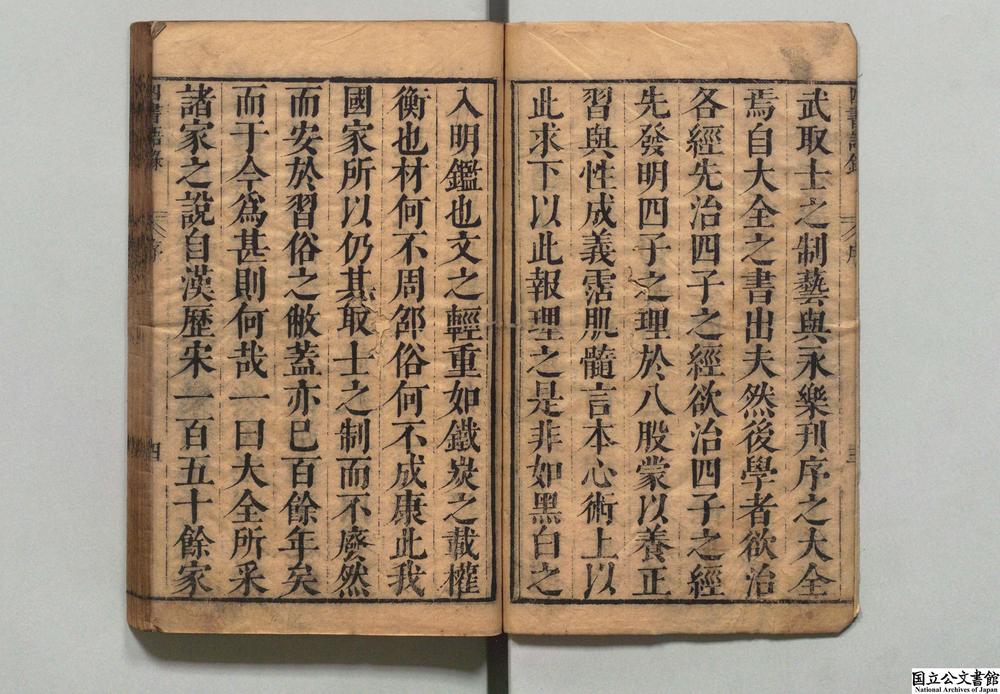 武取士之制藝與永樂刊序之大全
焉自大全之書出夫然後學者欲治
各經先治四子之經欲治四子之經
先發明四子之理於八股蒙以養正
習與性成義霑肌髓言本心術上以
此求下以此報理之是非如黑白之
入明鑑也文之輕重如鐵炭之載權
衡也材何不周邵俗何不成康此我
國家所以仍其取士之制而不廢然
而安於習俗之敝蓋亦已百餘年矣
而于今為甚則何哉一曰大全所采
諸家之說自漢歷宋一百五十餘家
四書語錄
序
四
国立公文書館
National Archives of Japan